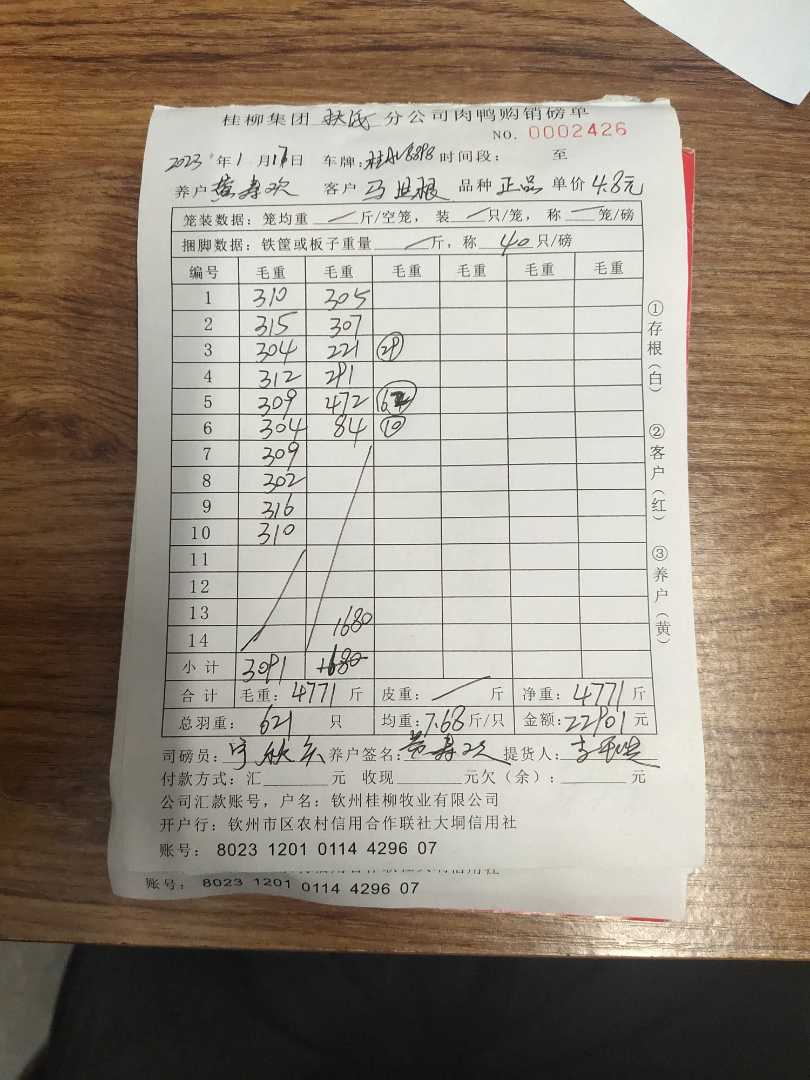 桂柳集团 分公司肉鸭购销磅单
NO. 0002426
2023 年 1 月 17 日 车牌: 时间段: 至
养户 黄寿欢 客户 马 品种 正品 单价 4.8元
笼装数据: 笼均重 斤/空笼, 装 只/笼, 称 笼/磅
捆脚数据: 铁筐或板子重量 斤, 称 40 只/磅
编号 毛重 毛重 毛重 毛重 毛重 毛重
1 310 305
2 315 307
3 304 221 29
4 312 291
5 309 472
6 304 84 10
7 309
8 302
9 316
10 310
11
12
13
1680
14
小计 3091
合计 毛重: 4771 斤 皮重: 斤 净重: 4771 斤
总羽重: 621 只 均重: 7.68 斤/只 金额: 22901 元
司磅员: 养户签名: 黄寿欢 提货人:
付款方式: 汇 元 收现 元欠(余): 元
公司汇款账号, 户名: 钦州桂柳牧业有限公司
开户行: 钦州市区农村信用合作联社大垌信用社
账号: 8023 1201 0114 4296 07
账号: 8023 1201 0114 4296 07
①存根(白)
②客户(红)
③养户(黄)